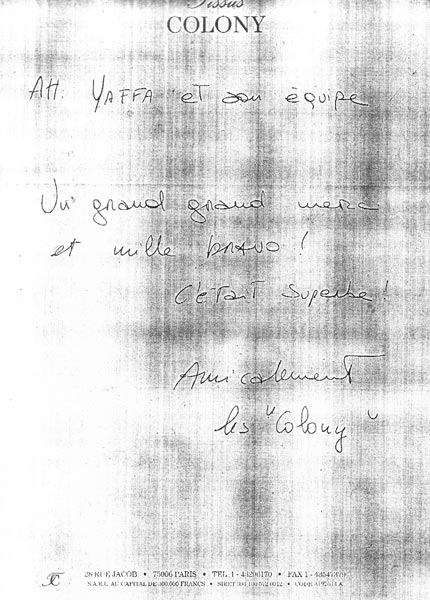 Tissus
COLONY
Att: YAFFA et son équipe
Un grand grand merci
et mille bravo !
C'était superbe !
Amicalement
les "Colony"
TC 28 RUE JACOB • 75006 PARIS • TEL. 1 - 43290170 • FAX 1 -
S.A.R.L. AU CAPITAL DE 300.000 FRANCS • SIRET • CODE APE